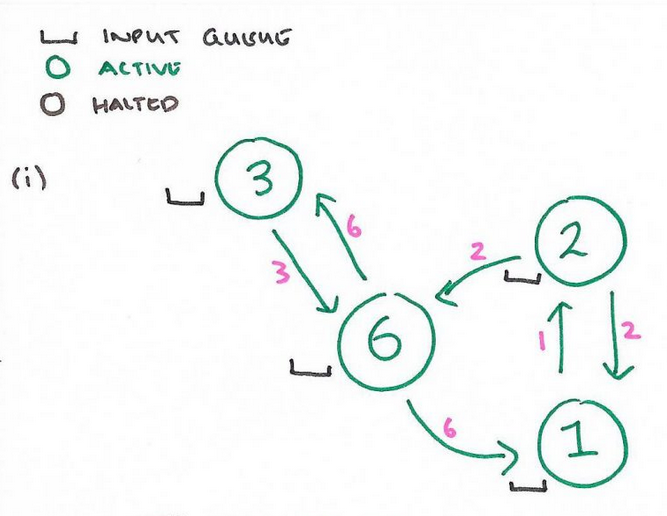 INPUT QUEUE
ACTIVE
HALTED
(i)
3
6
3
2
2
6
1
2
6
1